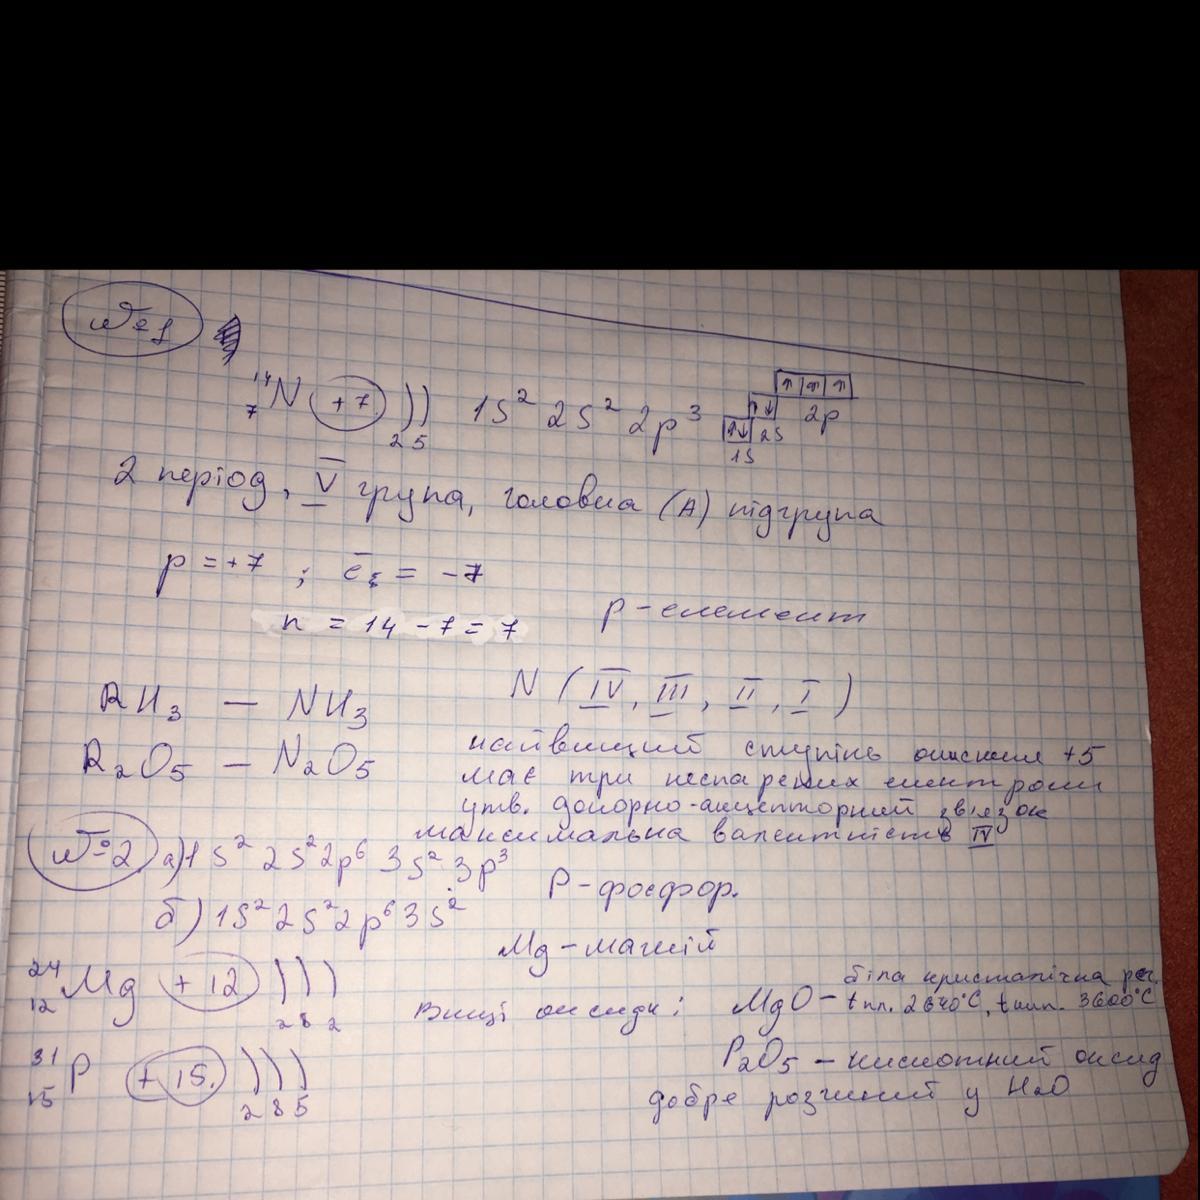 №1
¹⁴₇N (+7) ) ) 1s² 2s² 2p³ ↑↓ ↑↓ ↑ ↑ ↑
2 5 1s 2s 2p
2 період, V група, головна (А) підгрупа
p = +7 ; e̅ = -7
n = 14 - 7 = 7 p-елемент
RH₃ — NH₃ N (IV, III, II, I)
R₂O₅ — N₂O₅ найвищий ступінь окиснення +5
має три неспарених електрони
утв. донорно-акцепторний зв'язок
максимальна валентність IV
№2 а) 1s² 2s² 2p⁶ 3s² 3p³ P - фосфор.
б) 1s² 2s² 2p⁶ 3s² Mg - магній
²⁴₁₂Mg (+12) ) ) )
2 8 2
Вищі оксиди: MgO - біла кристалічна реч.
t пл. 2640°C, t кип. 3600°C
³¹₁₅P (+15) ) ) )
2 8 5
P₂O₅ - кислотний оксид
добре розчинний у H₂O